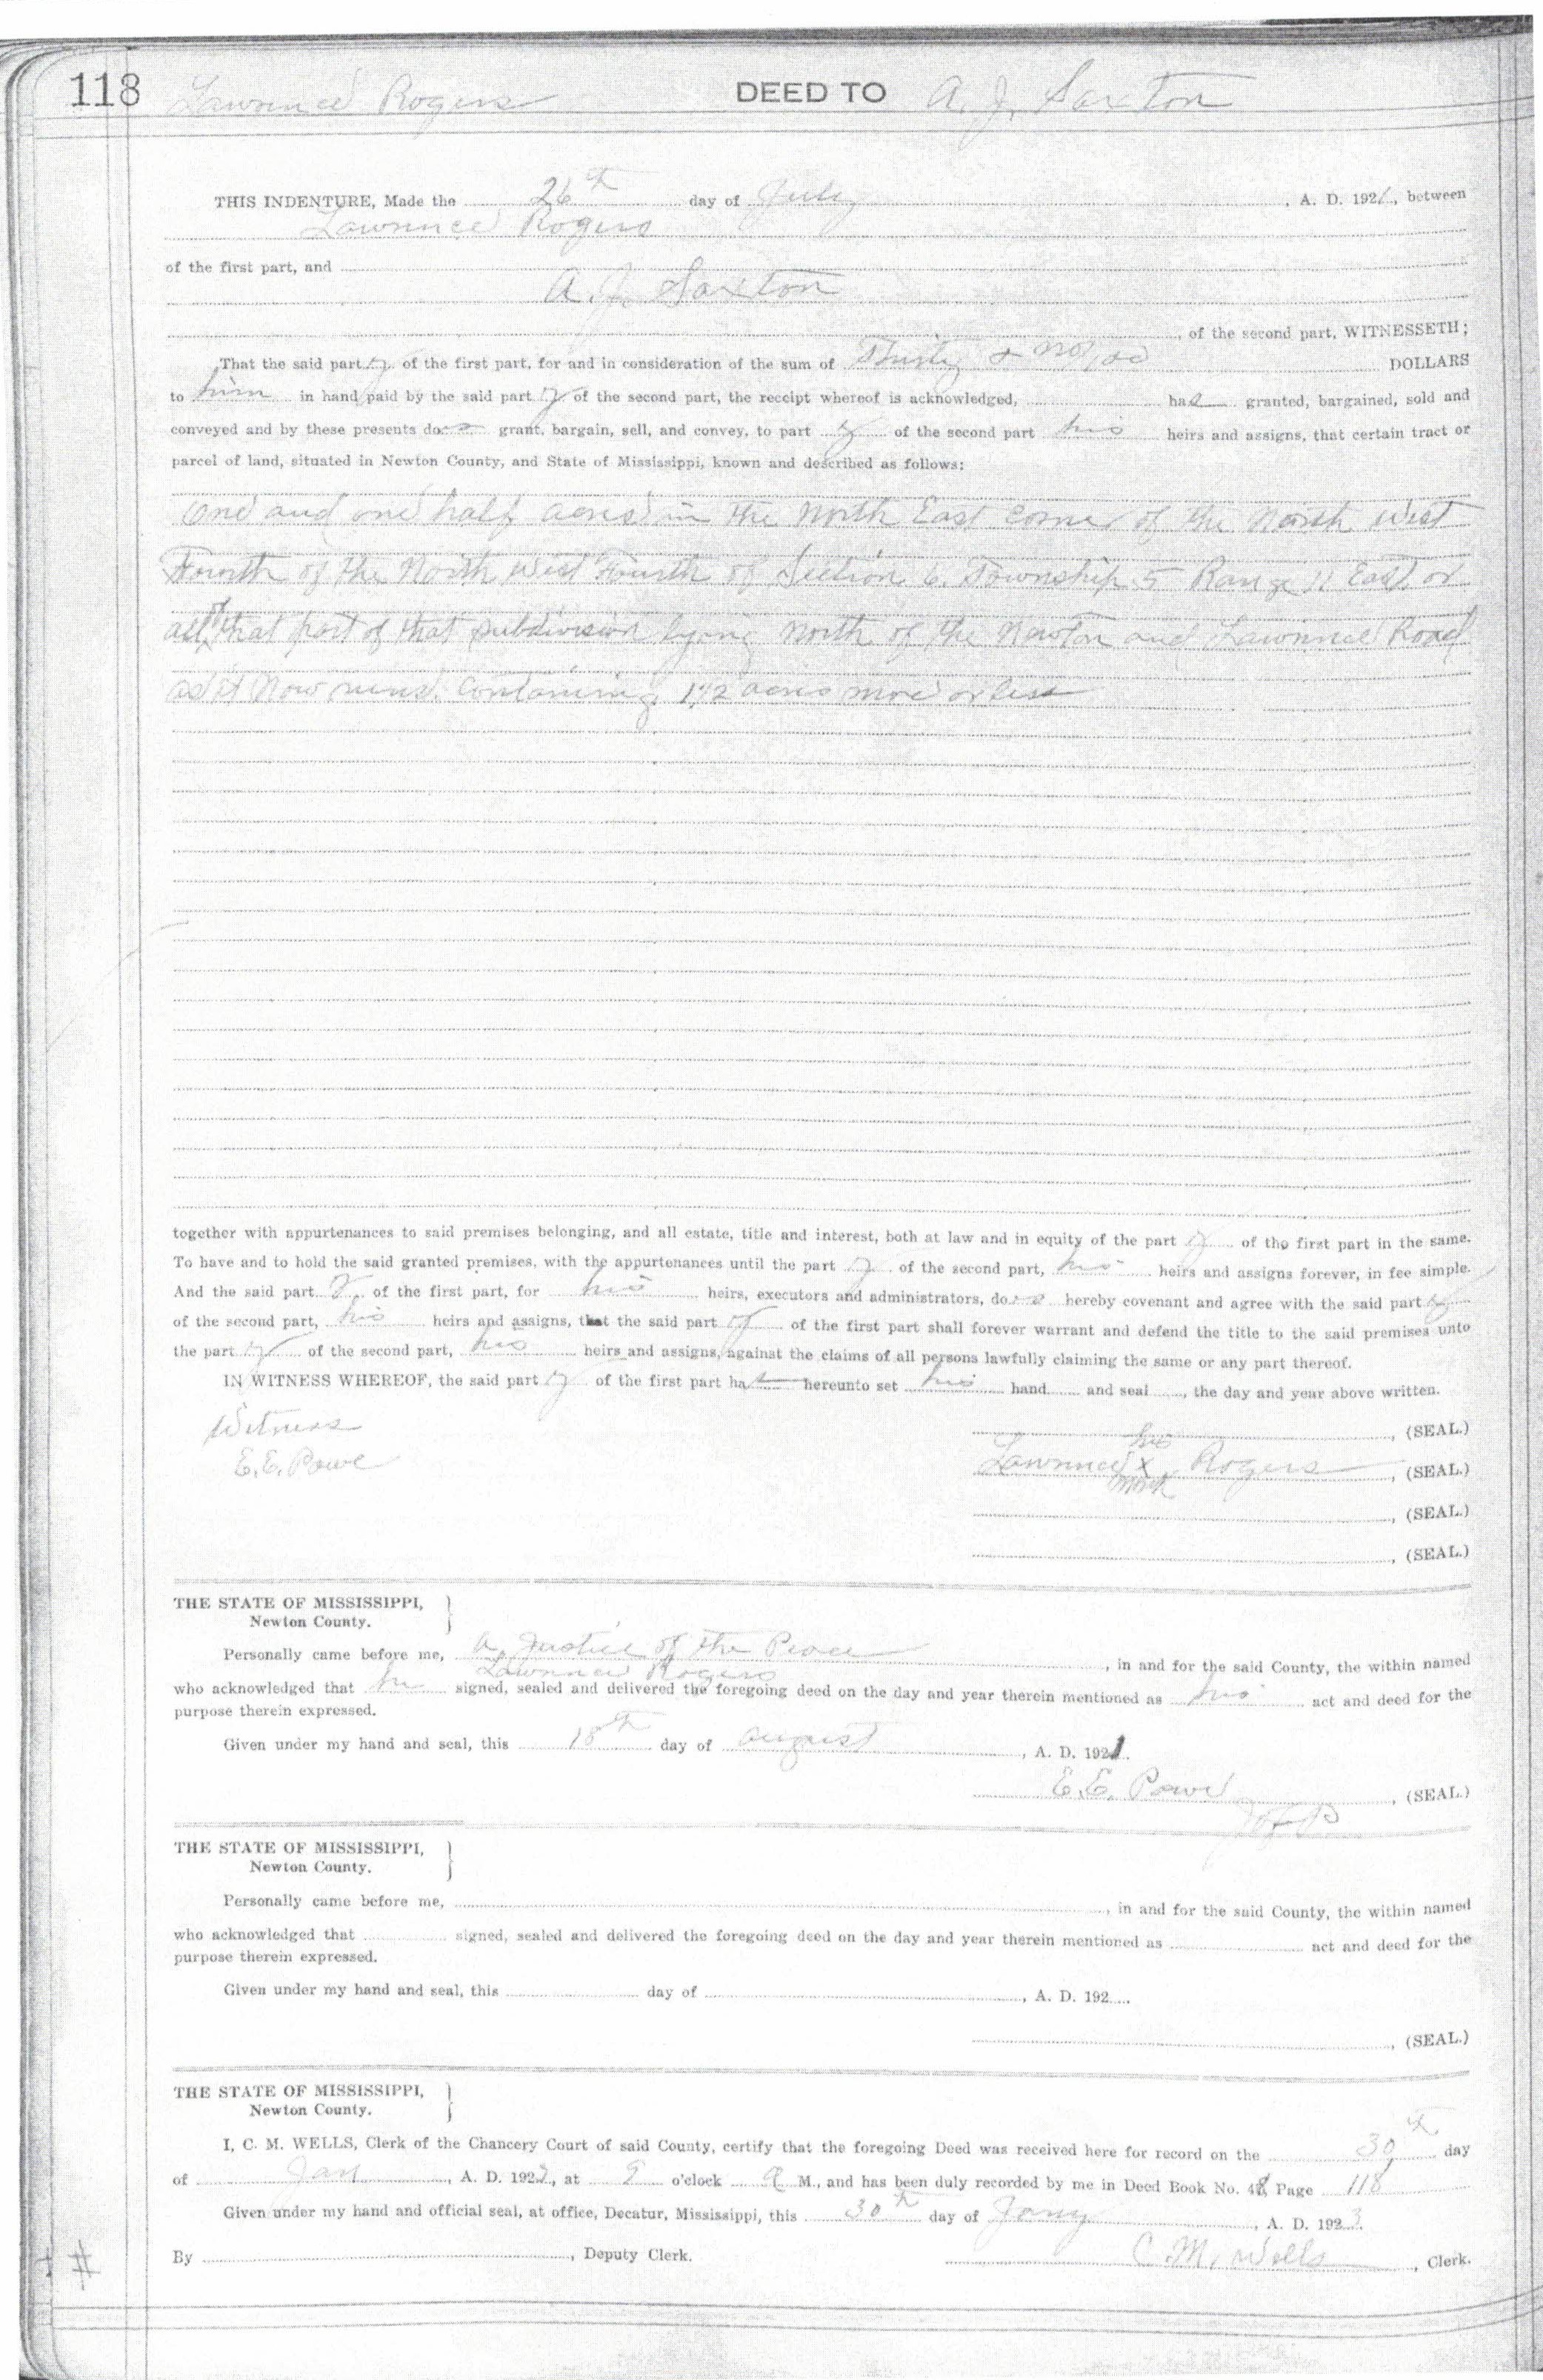 118 Lawrence Rogers DEED TO A. J. Saxton
THIS INDENTURE, Made the 26th day of July, A. D. 1921, between
Lawrence Rogers
of the first part, and
A. J. Saxton
, of the second part, WITNESSETH;
That the said party of the first part, for and in consideration of the sum of Thirty & no/100 DOLLARS
to him in hand paid by the said party of the second part, the receipt whereof is acknowledged, has granted, bargained, sold and
conveyed and by these presents does grant, bargain, sell, and convey, to party of the second part his heirs and assigns, that certain tract or
parcel of land, situated in Newton County, and State of Mississippi, known and described as follows:
One and one half acres in the North East corner of the North West
Fourth of the North West Fourth of Section 6, Township 5 Range 11 East, or
all of that part of that subdivision lying North of the Newton and Lawrence Road
as it now runs. Containing 1 1/2 acres more or less
together with appurtenances to said premises belonging, and all estate, title and interest, both at law and in equity of the party of the first part in the same.
To have and to hold the said granted premises, with the appurtenances until the party of the second part, his heirs and assigns forever, in fee simple.
And the said party of the first part, for his heirs, executors and administrators, does hereby covenant and agree with the said party
of the second part, his heirs and assigns, that the said party of the first part shall forever warrant and defend the title to the said premises unto
the party of the second part, his heirs and assigns, against the claims of all persons lawfully claiming the same or any part thereof.
IN WITNESS WHEREOF, the said party of the first part has hereunto set his hand and seal, the day and year above written.
Witness , (SEAL.)
E. E. Powe Lawrence his X mark Rogers , (SEAL.)
, (SEAL.)
, (SEAL.)
THE STATE OF MISSISSIPPI,
Newton County.
Personally came before me, a Justice of the Peace , in and for the said County, the within named
Lawrence Rogers
who acknowledged that he signed, sealed and delivered the foregoing deed on the day and year therein mentioned as his act and deed for the
purpose therein expressed.
Given under my hand and seal, this 18th day of August , A. D. 1921.
E. E. Powe , (SEAL.)
J of P
THE STATE OF MISSISSIPPI,
Newton County.
Personally came before me, , in and for the said County, the within named
who acknowledged that signed, sealed and delivered the foregoing deed on the day and year therein mentioned as act and deed for the
purpose therein expressed.
Given under my hand and seal, this day of , A. D. 192
, (SEAL.)
THE STATE OF MISSISSIPPI,
Newton County.
I, C. M. WELLS, Clerk of the Chancery Court of said County, certify that the foregoing Deed was received here for record on the 30th day
of Jan , A. D. 192 , at 9 o'clock A M., and has been duly recorded by me in Deed Book No. 48, Page 118
Given under my hand and official seal, at office, Decatur, Mississippi, this 30th day of Jany , A. D. 1923.
By , Deputy Clerk. C. M. Wells , Clerk.
#